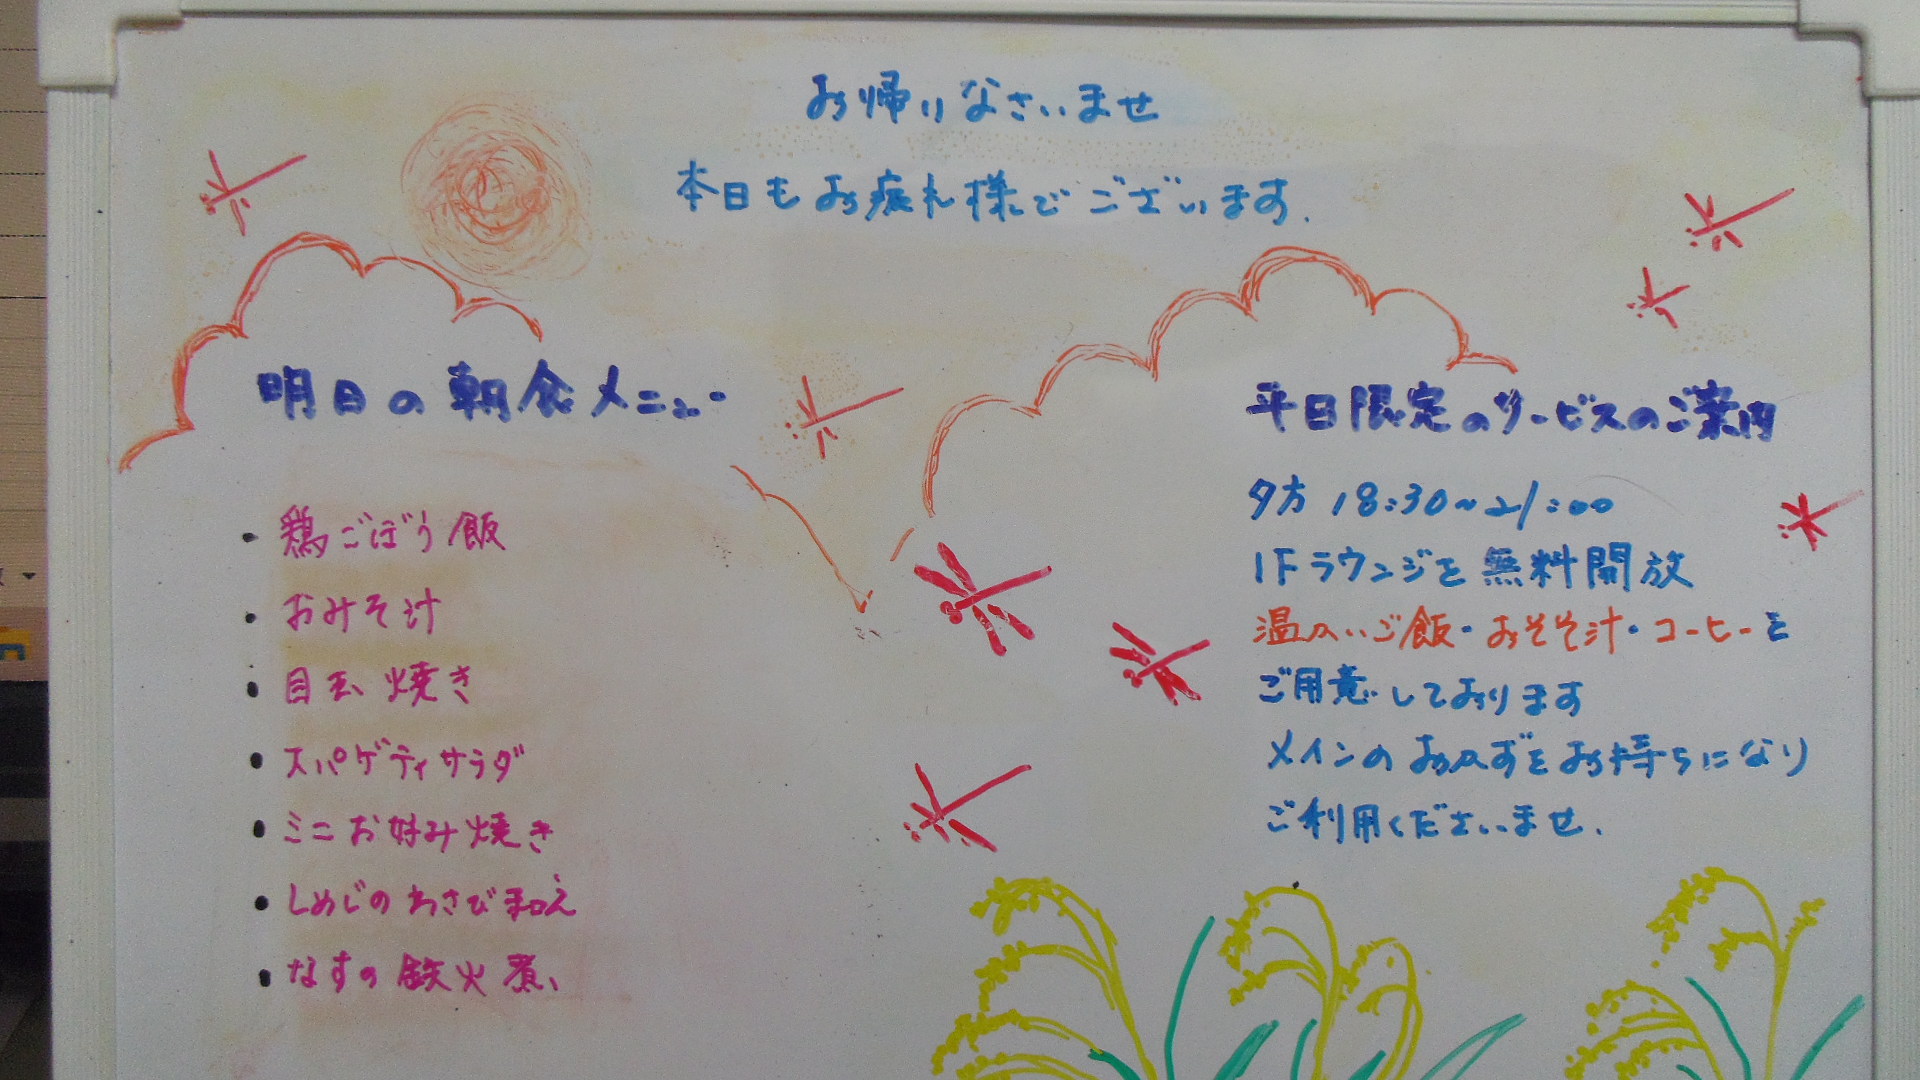 お帰りなさいませ
本日もお疲れ様でございます.
明日の朝食メニュー
・鶏ごぼう飯
・おみそ汁
・目玉焼き
・スパゲティサラダ
・ミニお好み焼き
・しめじのわさび和え
・なすの鉄火煮
平日限定のサービスのご案内
夕方 18:30~21:00
1Fラウンジを無料開放
温かいご飯・おそそ汁・コーヒーを
ご用意しております
メインのおかずをお持ちになり
ご利用くださいませ.